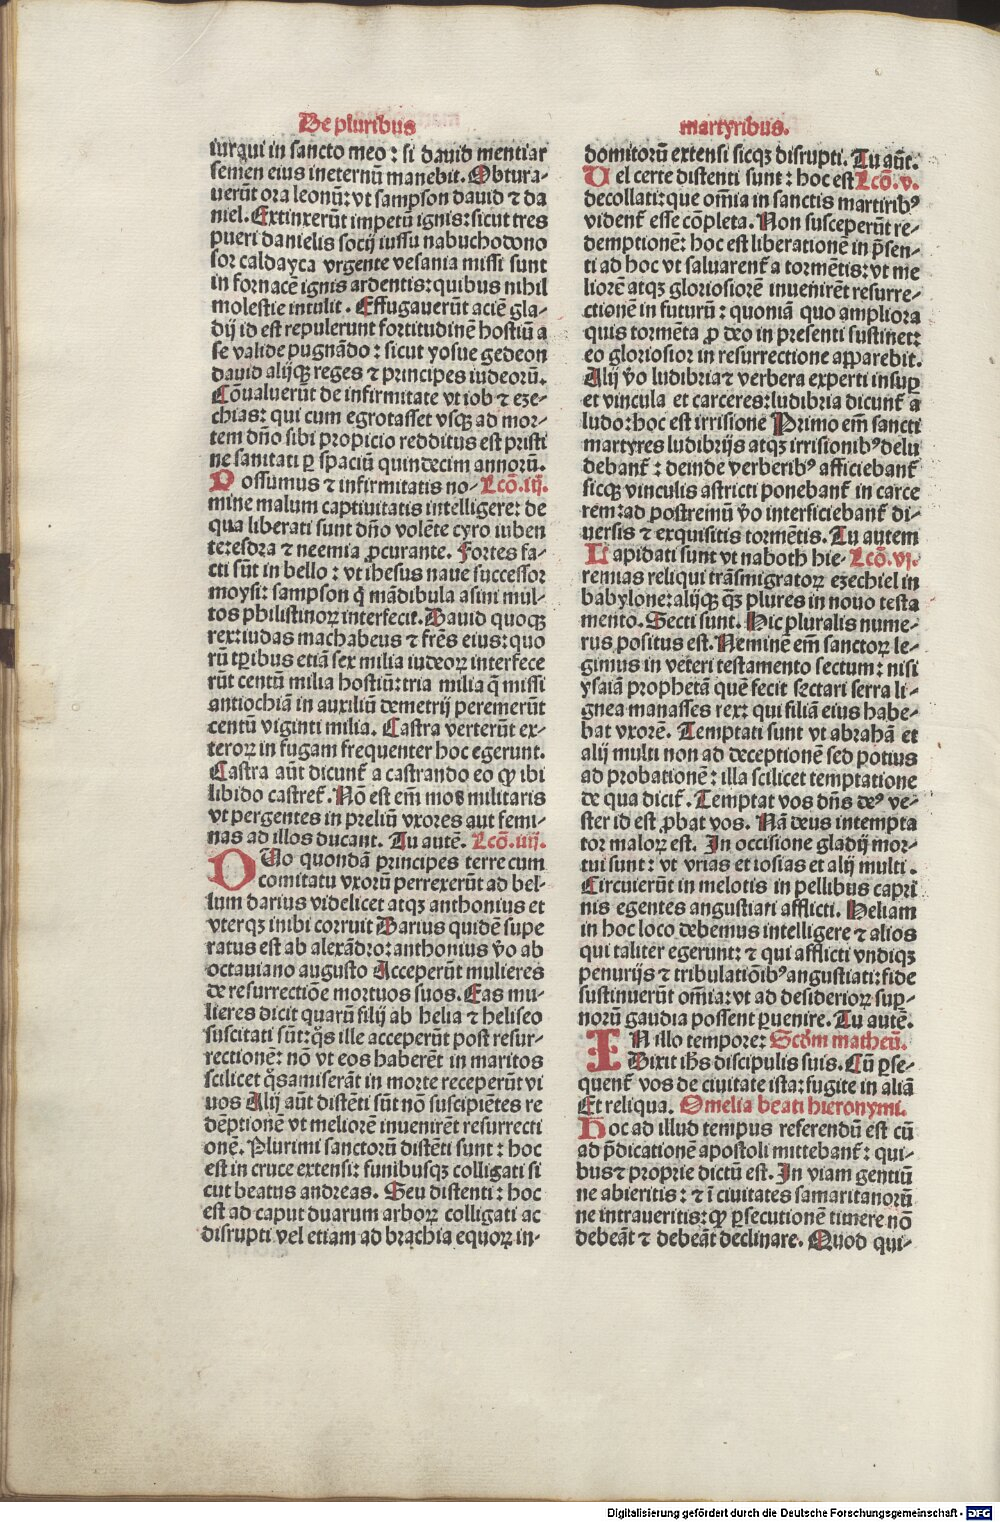 De pluribus
iurqui in sancto meo : si dauid mentiar
semen eius ineternū manebit. Obtura-
uerūt ora leonū: vt sampson dauid ⁊ da
niel. Extinxerūt impetū ignis: sicut tres
pueri danielis socij iussu nabuchodono
sor caldayca vrgente vesania missi sunt
in fornacē ignis ardentis: quibus nihil
molestie intulit. Effugauerūt aciē gla-
dij id est repulerunt fortitudinē hostiū a
se valide pugnādo : sicut yosue gedeon
dauid alijqꝫ reges ⁊ principes iudeorū.
Cōualuerūt de infirmitate vt iob ⁊ eze-
chias: qui cum egrotasset vsqꝫ ad mor-
tem dño sibi propicio redditus est pristi
ne sanitati ꝑ spaciū quindecim annorū.
Possumus ⁊ infirmitatis no- Lcō.iij.
mine malum captiuitatis intelligere: de
qua liberati sunt dño volēte cyro iuben
te: esdra ⁊ neemia ꝓcurante. Fortes fa-
cti sūt in bello : vt ihesus naue successor
moysi: sampson q̄ mādibula asini mul-
tos philistinoꝝ interfecit. Dauid quoqꝫ
rex: iudas machabeus ⁊ frēs eius: quo
rū tꝑibus etiā sex milia iudeoꝝ interfece
rūt centū milia hostiū: tria milia q̄ missi
antiochiā in auxiliū demetrij peremerūt
centū viginti milia. Castra verterūt ex-
teroꝝ in fugam frequenter hoc egerunt.
Castra aūt dicunt̄ a castrando eo ꝙ ibi
libido castret̄. Nō est em̄ mos militaris
vt pergentes in preliū vxores aut femi-
nas ad illos ducant. Tu autē. Lcō.iiij.
DUo quondā principes terre cum
comitatu vxorū perrexerūt ad bel-
lum darius videlicet atqꝫ anthonius et
vterqꝫ inibi corruit Darius quidē supe
ratus est ab alexādro: anthonius v̄o ab
octauiano augusto Acceperūt mulieres
de resurrectiōe mortuos suos. Eas mu-
lieres dicit quarū filij ab helia ⁊ heliseo
suscitati sūt: q̄s ille acceperūt post resur-
rectionē: nō vt eos haberēt in maritos
scilicet q̄s amiserāt in morte receperūt vi
uos Alij aūt distēti sūt nō suscipiētes re
dēptionē vt meliorē inuenirēt resurrecti
onē. Plurimi sanctorū distēti sunt : hoc
est in cruce extensi: funibusqꝫ colligati si
cut beatus andreas. Seu distenti : hoc
est ad caput duarum arboꝝ colligati ac
disrupti vel etiam ad brachia equoꝝ in-
martyribus.
domitorū extensi sicqꝫ disrupti. Tu aūt.
Uel certe distenti sunt : hoc est Lcō.v.
decollati: que om̄ia in sanctis martiribꝰ
vident̄ esse cōpleta. Non susceperūt re-
demptionē: hoc est liberationē in p̄sen-
ti ad hoc vt saluarent̄ a tormētis: vt me
liorē atqꝫ gloriosiorē inuenirēt resurre-
ctionē in futurū : quoniā quo ampliora
quis tormēta ꝓ deo in presenti sustinet:
eo gloriosior in resurrectione apꝑarebit.
Alij v̄o ludibria ⁊ verbera experti insuꝑ
et vincula et carceres: ludibria dicunt̄ a
ludo: hoc est irrisione Primo em̄ sancti
martyres ludibrijs atqꝫ irrisionibꝰ delu
debant̄ : deinde verberibꝰ afficiebant̄
sicqꝫ vinculis astricti ponebant̄ in carce
rem: ad postremū v̄o interficiebant̄ di-
uersis ⁊ exquisitis tormētis. Tu autem
Lapidati sunt vt naboth hie- Lcō.vj.
remias reliqui trāsmigratoꝝ ezechiel in
babylone: alijqꝫ q̄ꝫ plures in nouo testa
mento. Secti sunt. Hic pluralis nume-
rus positus est. Neminē em̄ sanctoꝝ le-
gimus in veteri testamento sectum: nisi
ysaiā prophetā quē fecit sectari serra li-
gnea manasses rex: qui filiā eius habe-
bat vxorē. Temptati sunt vt abrahā et
alij multi non ad deceptionē sed potius
ad probationē : illa scilicet temptatione
de qua dicit̄. Temptat vos dn̄s deꝰ ve-
ster id est ꝓbat vos. Nā deus intempta
tor maloꝝ est. In occisione gladij mor-
tui sunt : vt vrias et iosias et alij multi.
Circuierūt in melotis in pellibus capri
nis egentes angustiati afflicti. Heliam
in hoc loco debemus intelligere ⁊ alios
qui taliter egerunt: ⁊ qui afflicti vndiqꝫ
penurijs ⁊ tribulatiōibꝰ angustiati: fide
sustinuerūt om̄ia: vt ad desiderioꝝ suꝑ-
norū gaudia possent ꝑuenire. Tu autē.
IN illo tempore: Scd̄m matheū.
Dixit ihs discipulis suis. Cū ꝑse-
quent̄ vos de ciuitate ista: fugite in aliā
Et reliqua. Omelia beati hieronymi.
Hoc ad illud tempus referendū est cū
ad p̄dicationē apostoli mittebant̄ : qui-
bus ⁊ proprie dictū est. In viam gentiū
ne abieritis : ⁊ ī ciuitates samaritanorū
ne intraueritis: ꝙ ꝑsecutionē timere nō
debeāt ⁊ debeāt declinare. Quod qui-
Digitalisierung gefördert durch die Deutsche Forschungsgemeinschaft - DFG